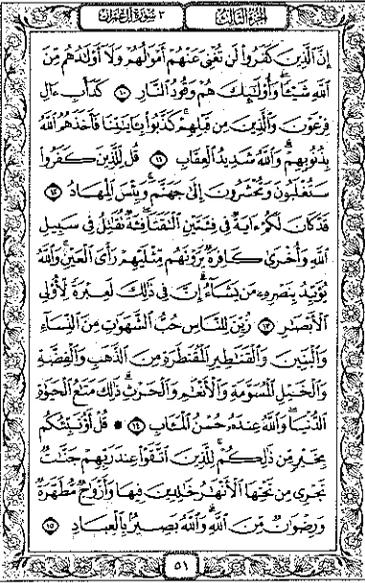 الجزء الثالث ٣ سورة آل عمران
إِنَّ ٱلَّذِينَ كَفَرُوا۟ لَن تُغْنِىَ عَنْهُمْ أَمْوَٰلُهُمْ وَلَآ أَوْلَٰدُهُم مِّنَ
ٱللَّهِ شَيْـًٔا وَأُو۟لَٰٓئِكَ هُمْ وَقُودُ ٱلنَّارِ ۝١٠ كَدَأْبِ ءَالِ
فِرْعَوْنَ وَٱلَّذِينَ مِن قَبْلِهِمْ كَذَّبُوا۟ بِـَٔايَٰتِنَا فَأَخَذَهُمُ ٱللَّهُ
بِذُنُوبِهِمْ وَٱللَّهُ شَدِيدُ ٱلْعِقَابِ ۝١١ قُل لِّلَّذِينَ كَفَرُوا۟
سَتُغْلَبُونَ وَتُحْشَرُونَ إِلَىٰ جَهَنَّمَ وَبِئْسَ ٱلْمِهَادُ ۝١٢
قَدْ كَانَ لَكُمْ ءَايَةٌ فِى فِئَتَيْنِ ٱلْتَقَتَا فِئَةٌ تُقَٰتِلُ فِى سَبِيلِ
ٱللَّهِ وَأُخْرَىٰ كَافِرَةٌ يَرَوْنَهُم مِّثْلَيْهِمْ رَأْىَ ٱلْعَيْنِ وَٱللَّهُ
يُؤَيِّدُ بِنَصْرِهِۦ مَن يَشَآءُ إِنَّ فِى ذَٰلِكَ لَعِبْرَةً لِّأُو۟لِى
ٱلْأَبْصَٰرِ ۝١٣ زُيِّنَ لِلنَّاسِ حُبُّ ٱلشَّهَوَٰتِ مِنَ ٱلنِّسَآءِ
وَٱلْبَنِينَ وَٱلْقَنَٰطِيرِ ٱلْمُقَنطَرَةِ مِنَ ٱلذَّهَبِ وَٱلْفِضَّةِ
وَٱلْخَيْلِ ٱلْمُسَوَّمَةِ وَٱلْأَنْعَٰمِ وَٱلْحَرْثِ ذَٰلِكَ مَتَٰعُ ٱلْحَيَوٰةِ
ٱلدُّنْيَا وَٱللَّهُ عِندَهُۥ حُسْنُ ٱلْمَـَٔابِ ۝١٤ ۞ قُلْ أَؤُنَبِّئُكُم
بِخَيْرٍ مِّن ذَٰلِكُمْ لِلَّذِينَ ٱتَّقَوْا۟ عِندَ رَبِّهِمْ جَنَّٰتٌ
تَجْرِى مِن تَحْتِهَا ٱلْأَنْهَٰرُ خَٰلِدِينَ فِيهَا وَأَزْوَٰجٌ مُّطَهَّرَةٌ
وَرِضْوَٰنٌ مِّنَ ٱللَّهِ وَٱللَّهُ بَصِيرٌۢ بِٱلْعِبَادِ ۝١٥
٥١